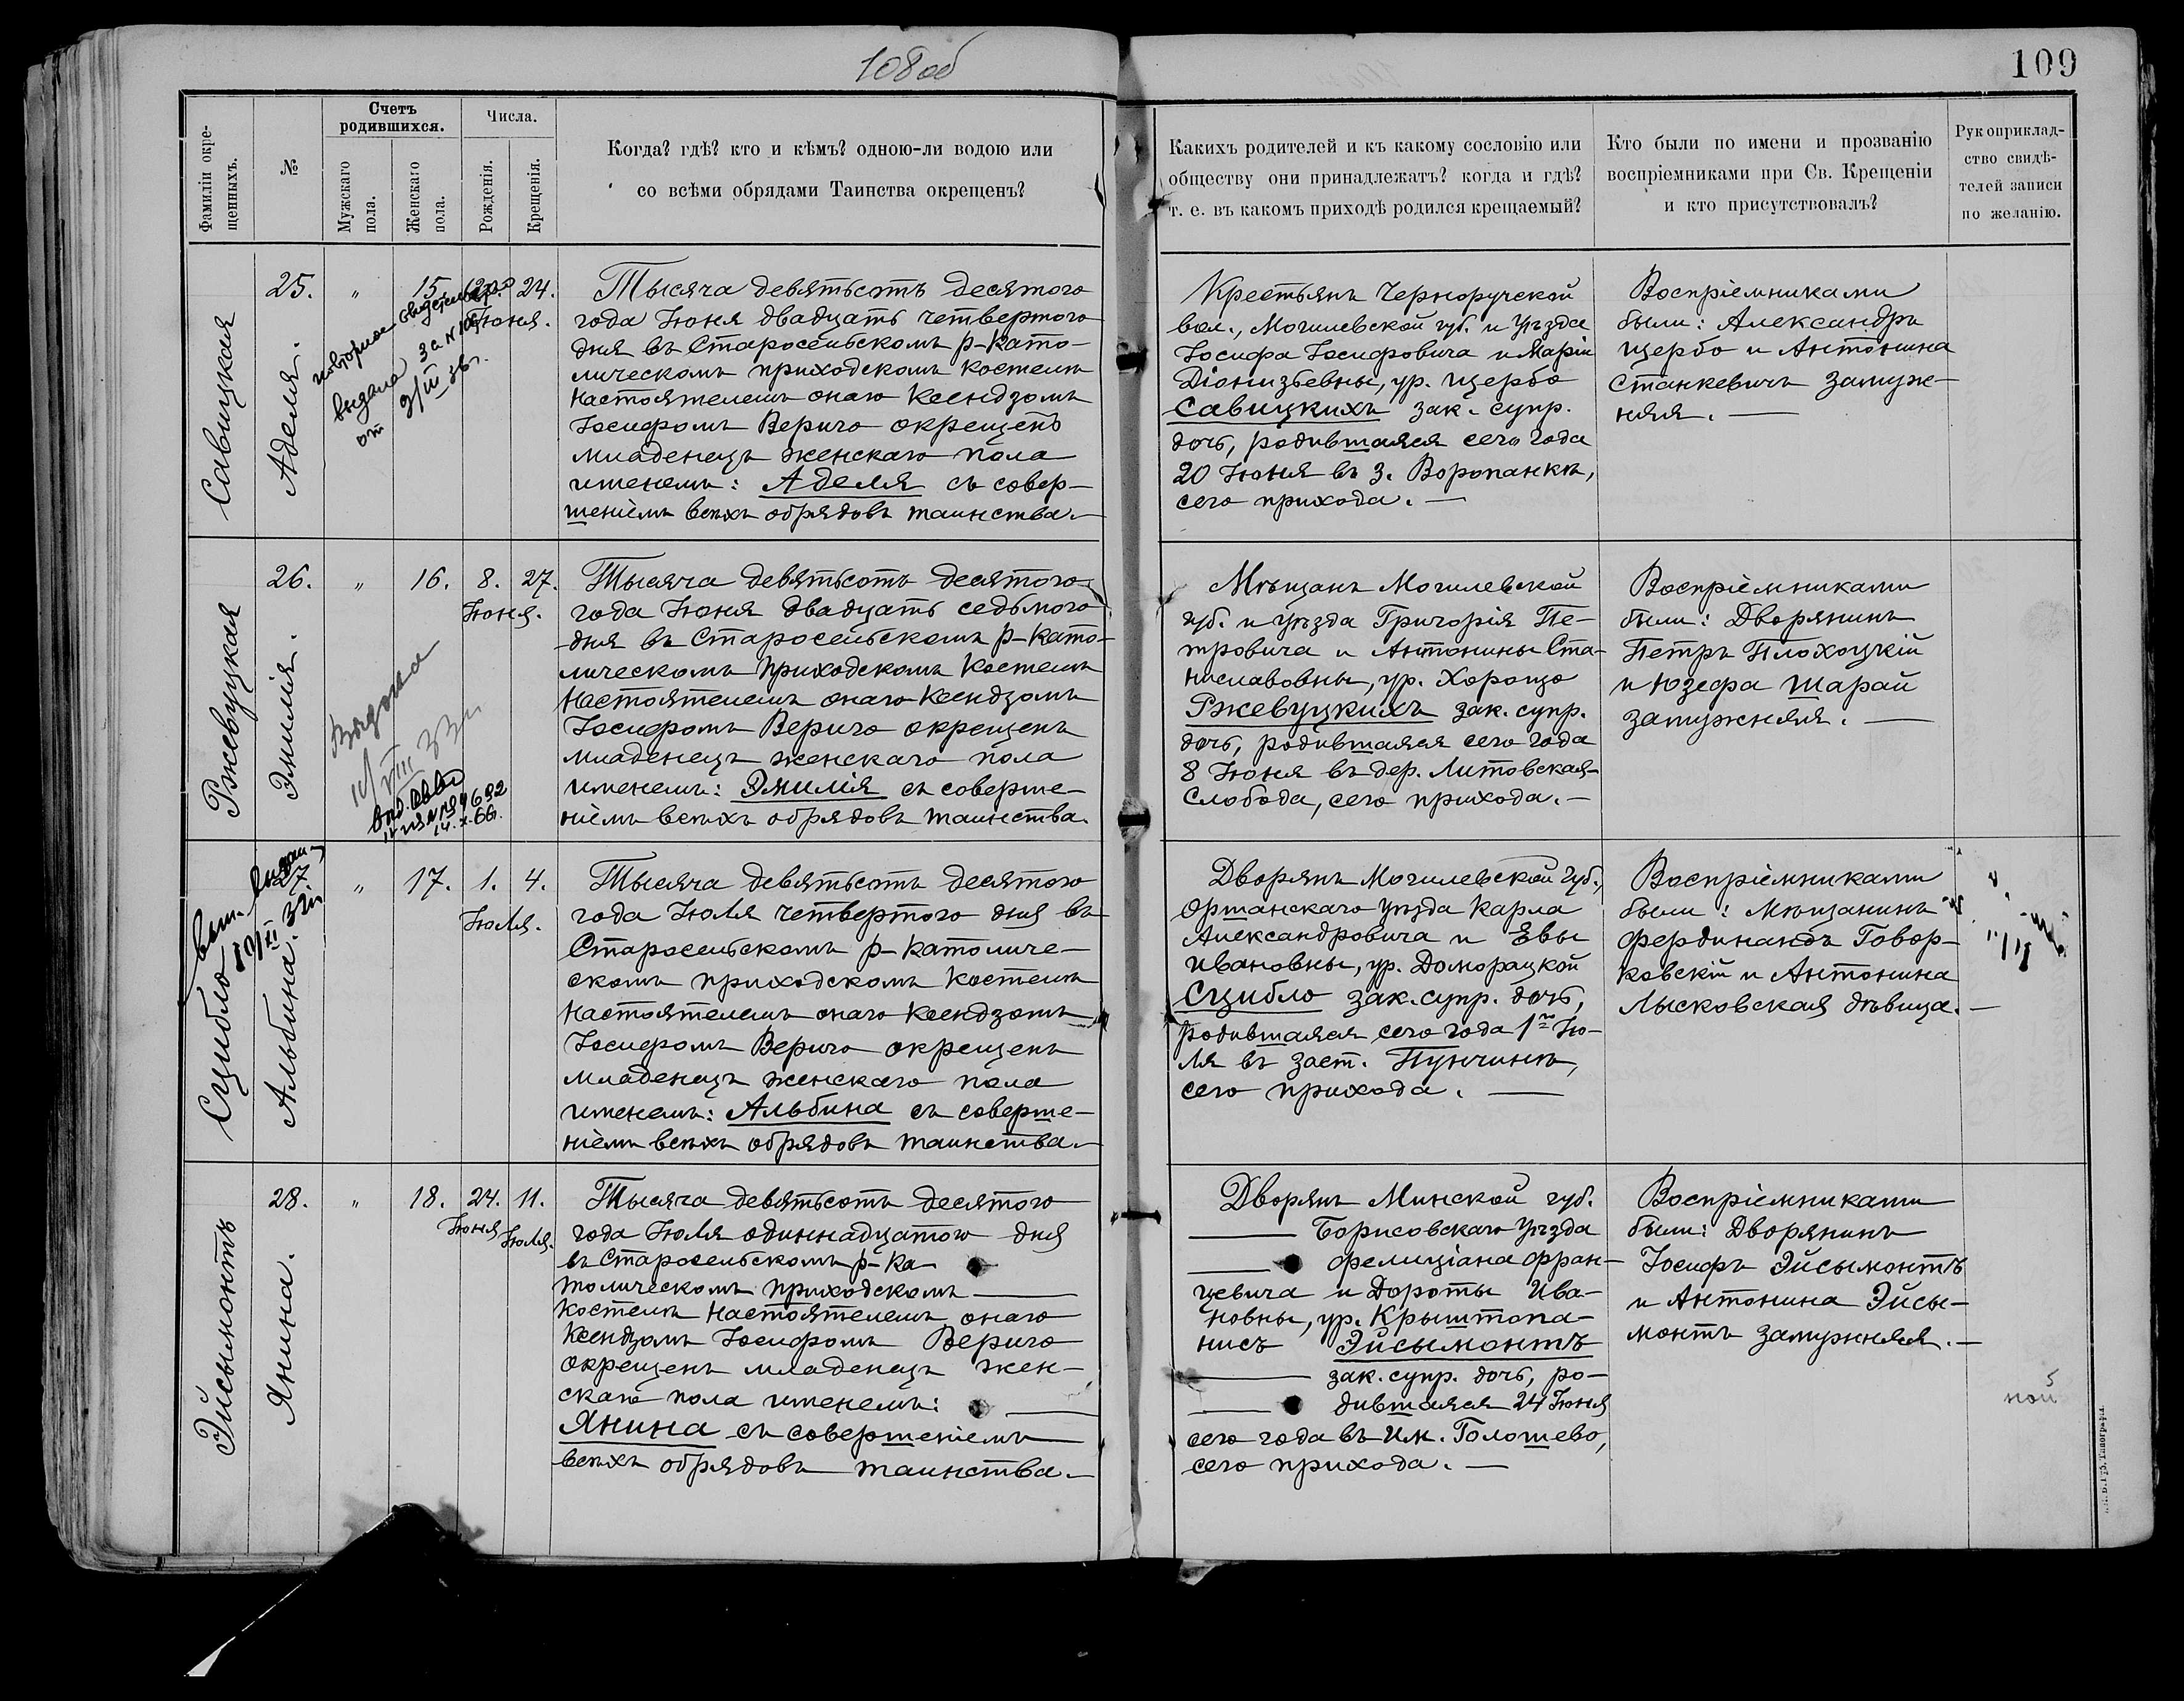 108 об
109
Фамиліи окре-
щенныхъ.
№
Счетъ
родившихся.
Мужскаго
пола.
Женскаго
пола.
Числа.
Рожденія.
Крещенія.
Когда? гдѣ? кто и кѣмъ? одною-ли водою или
со всѣми обрядами Таинства окрещенъ?
Какихъ родителей и къ какому сословію или
обществу они принадлежатъ? когда и гдѣ?
т. е. въ какомъ приходѣ родился крещаемый?
Кто были по имени и прозванію
воспріемниками при Св. Крещеніи
и кто присутствовалъ?
Рукоприклад-
ство свидѣ-
телей записи
по желанію.
Савицкая
25.
Аделя.
"
15.
20.
24.
Іюня.
повторное свидетельство
выдано за №
от 3/III 36 г.
Тысяча девятьсотъ десятого
года Іюня двадцать четвертого
дня въ Старосельскомъ р-като-
лическомъ приходскомъ костелѣ
настоятелемъ онаго Ксендзомъ
Іосифомъ Верыго окрещенъ
младенецъ женскаго пола
именемъ: Аделя съ совер-
шеніемъ всѣхъ обрядовъ таинства.—
Крестьянъ Черноручской
вол., Могилевской губ. и уѣзда
Іосифа Іосифовича и Маріи
Діонизьевны, ур. Щербо
Савицкихъ зак. супр.
дочь, родившаяся сего года
20 Іюня въ з. Воропанкѣ,
сего прихода. —
Воспріемниками
были: Александръ
Щербо и Антонина
Станкевичъ замуж-
няя. —
Ржевуцкая
26.
Эмилія.
"
16.
8.
27.
Іюня.
Выдана
10/VIII 33 г.
14.X.66 г.
Тысяча девятьсотъ десятого
года Іюня двадцать седьмого
дня въ Старосельскомъ р-като-
лическомъ приходскомъ костелѣ
настоятелемъ онаго Ксендзомъ
Іосифомъ Верыго окрещенъ
младенецъ женскаго пола
именемъ: Эмилія съ соверше-
ніемъ всѣхъ обрядовъ таинства.
Мѣщанъ Могилевской
губ. и уѣзда Григорія Пе-
тровича и Антонины Ста-
ниславовны, ур. Хорощо
Ржевуцкихъ зак. супр.
дочь, родившаяся сего года
8 Іюня въ дер. Литовская-
Слобода, сего прихода.—
Воспріемниками
были: Дворянинъ
Петръ Плохоцкій
и Юзефа Шарай
замужняя. —
Сцибло
27
Альбина.
"
17.
1.
4.
Іюля.
Тысяча девятьсотъ десятого
года Іюля четвертого дня въ
Старосельскомъ р-католиче-
скомъ приходскомъ костелѣ
настоятелемъ онаго Ксендзомъ
Іосифомъ Верыго окрещенъ
младенецъ женскаго пола
именемъ: Альбина съ соверше-
ніемъ всѣхъ обрядовъ таинства.—
Дворянъ Могилевской губ.,
Оршанскаго уѣзда Карла
Александровича и Евы
Ивановны, ур. Доморацкой
Сцибло зак. супр. дочь,
родившаяся сего года 1го Ію-
ля въ заст. Пунчинѣ,
сего прихода. —
Воспріемниками
были: Мѣщанинъ
Фердинандъ Говор-
ковскій и Антонина
Лысковская дѣвица.—
Эйсымонтъ
28.
Янина.
"
18.
24.
11.
Іюня
Іюля.
Тысяча девятьсотъ десятого
года Іюля одиннадцатого дня
въ Старосельскомъ р-ка-
толическомъ приходскомъ —
костелѣ настоятелемъ онаго
Ксендзомъ Іосифомъ Верыго
окрещенъ младенецъ жен-
скаго пола именемъ: —
Янина съ совершеніемъ
всѣхъ обрядовъ таинства.—
Дворянъ Минской губ.
— Борисовскаго уѣзда
— Фелиціана Фран-
цевича и Дороты Ива-
новны, ур. Крыштопа-
нисъ Эйсымонтъ
— зак. супр. дочь, ро-
— дившаяся 24 Іюня
сего года въ им. Голошево,
сего прихода. —
Воспріемниками
были: Дворянинъ
Іосифъ Эйсымонтъ
и Антонина Эйсы-
монтъ замужняя.—